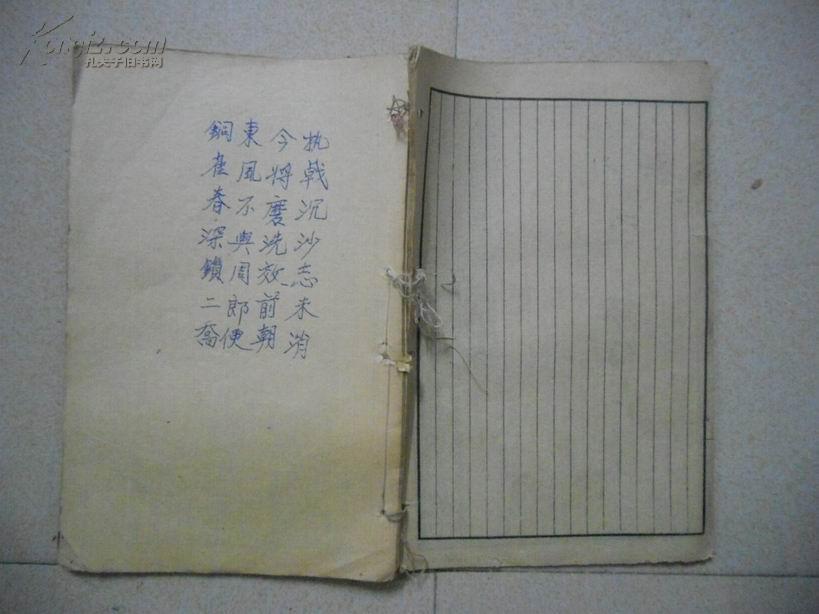 执戟沉沙志未消
今将磨洗效前朝
東風不與周郎便
銅雀春深鎖二喬
Kongfz.com
孔夫子旧书网